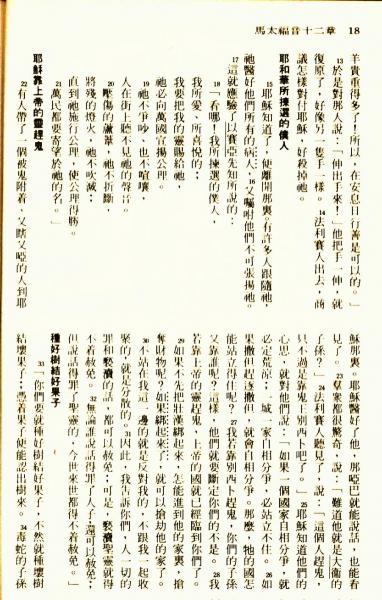 馬太福音十二章 18
羊貴重得多了！所以，在安息日行善是可以的。」
13 於是對那人說：「伸出手來！」他把手一伸，就
復原了，好像另一隻手一樣。14 法利賽人出去，商
議怎樣對付耶穌，好殺掉祂。
耶和華所揀選的僕人
15 耶穌知道了，便離開那裏。有許多人跟隨祂，
祂醫好他們所有的病人，16 又囑咐他們不可張揚祂。
17 這就應驗了以賽亞先知所說的：
18 「看哪！我所揀選的僕人，
我所愛、所喜悅的；
我要把我的靈賜給祂，
祂必向萬國宣揚公理。
19 祂不爭吵、也不喧嚷，
人在街上聽不見祂的聲音。
20 壓傷的蘆葦，祂不折斷，
將殘的燈火，祂不吹滅；
直到祂施行公理，使公理得勝。
21 萬民都要寄望於祂的名。」
耶穌靠上帝的靈趕鬼
22 有人帶了一個被鬼附着、又瞎又啞的人到耶
穌那裏。耶穌醫好了他，那啞巴就能說話，也能看
見了。23 羣衆都很驚奇，說：「難道他就是大衞的
子孫？」24 法利賽人聽見了，說：「這個人趕鬼，
只不過是靠鬼王別西卜吧了。」25 耶穌知道他們的
心思，就對他們說：「如果一個國家自相分爭，就
必定荒原；一城一家自相分爭，必站立不住。26 如
果撒但趕逐撒但，就會自相分爭。那麼，牠的國怎
能站立得住呢？27 我若靠別西卜趕鬼，你們的子孫
又靠誰呢？這樣，他們就要斷定你們的不是。28 我
若靠上帝的靈趕鬼，上帝的國就已經臨到你們了。
29 如果不先把壯漢綁起來，怎能進到他的家裏，搶
奪財物呢？如果綁起來了，就可以搶劫他的家了。
30 不站在我這一邊的就是反對我的，不跟我一起收
聚的，就是分散的。31 因此，我告訴你們，人一切的
罪和褻瀆的話，都可以赦免；可是，褻瀆聖靈就得
不着赦免。32 無論誰說話得罪了人子，還可以赦免；
但說話得罪了聖靈的，今世來世都得不着赦免。」
種好樹結好果子
33 「你們要就種好樹結好果子，不然就種壞樹
結壞果子；憑着果子便能認出樹來。34 毒蛇的子孫